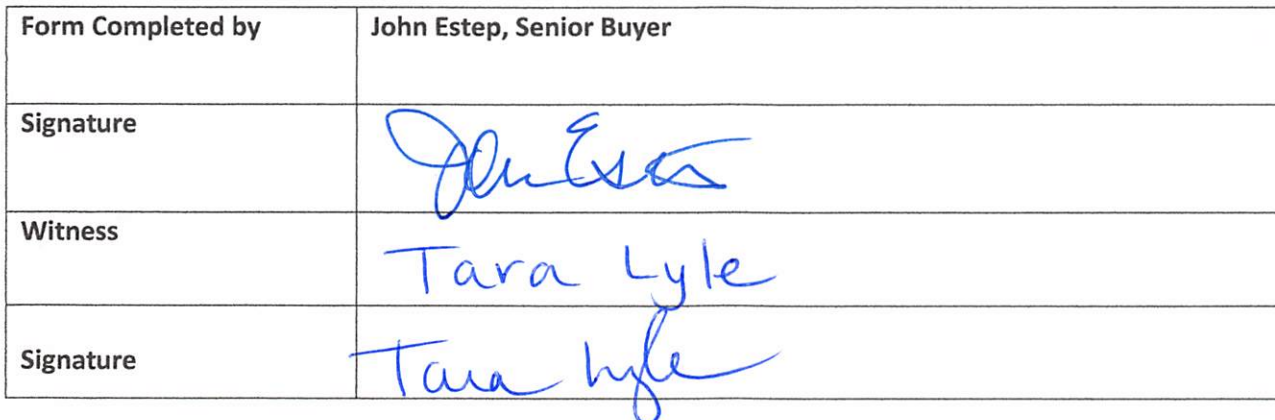 Form Completed by
John Estep, Senior Buyer
Signature
John Estep
Witness
Tara Lyle
Signature
Tara Lyle